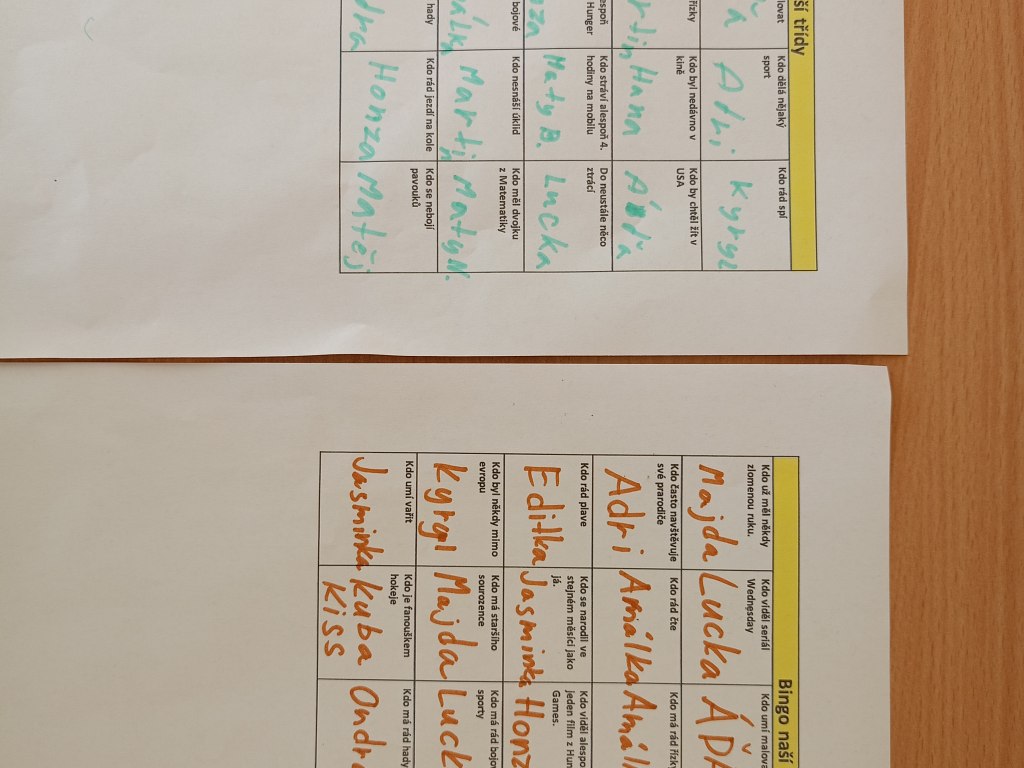 ší třídy
alovat
Kdo dělá nějaký
sport
Kdo rád spí
Adri
Kyryl
řízky
Kdo byl nedávno v
kině
Kdo by chtěl žít v
USA
rtin
Hana
Áďa
espoň
Hunger
Kdo stráví alespoň 4.
hodiny na mobilu
Do neustále něco
ztrácí
nza
Maty B.
Lucka
bojové
Kdo nesnáší úklid
Kdo měl dvojku
z Matematiky
álka
Martin
Maty N.
hady
Kdo rád jezdí na kole
Kdo se nebojí
pavouků
dra
Honza
Matěj
Bingo naší
Kdo už měl někdy
zlomenou ruku.
Kdo viděl seriál
Wednesday
Kdo umí malova
Majda
Lucka
Áďa
Kdo často navštěvuje
své prarodiče
Kdo rád čte
Kdo má rád řízk
Adri
Amálka
Amál
Kdo rád plave
Kdo se narodil ve
stejném měsíci jako
já.
Kdo viděl alespo
jeden film z Hun
Games.
Editka
Jasminka
Honz
Kdo byl někdy mimo
evropu
Kdo má staršího
sourozence
Kdo má rád bojov
sporty
Kyryl
Majda
Luck
Kdo umí vařit
Kdo je fanouškem
hokeje
Kdo má rád hady
Jasminka
Kuba
Kiss
Ondr